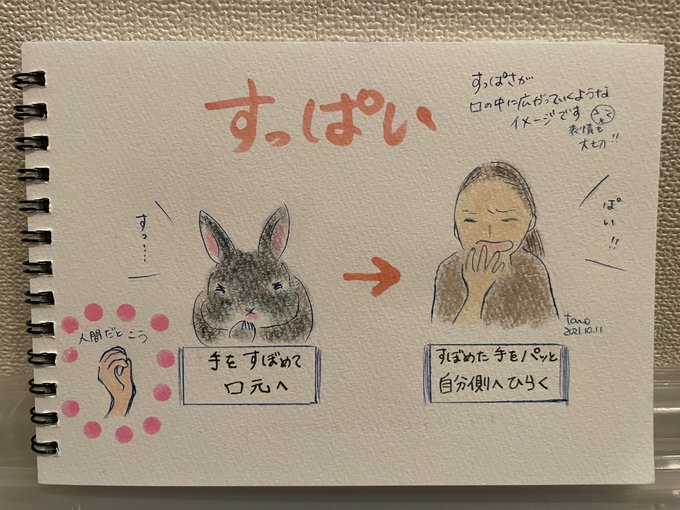 すっぱい
すっぱさが
口の中に広がっていくような
イメージです
表情も
大切!!
すっ……
ぱい!!
人間だと こう
手を すぼめて
口元へ
すぼめた 手を パッと
自分側へ ひらく
taro
2021.10.11